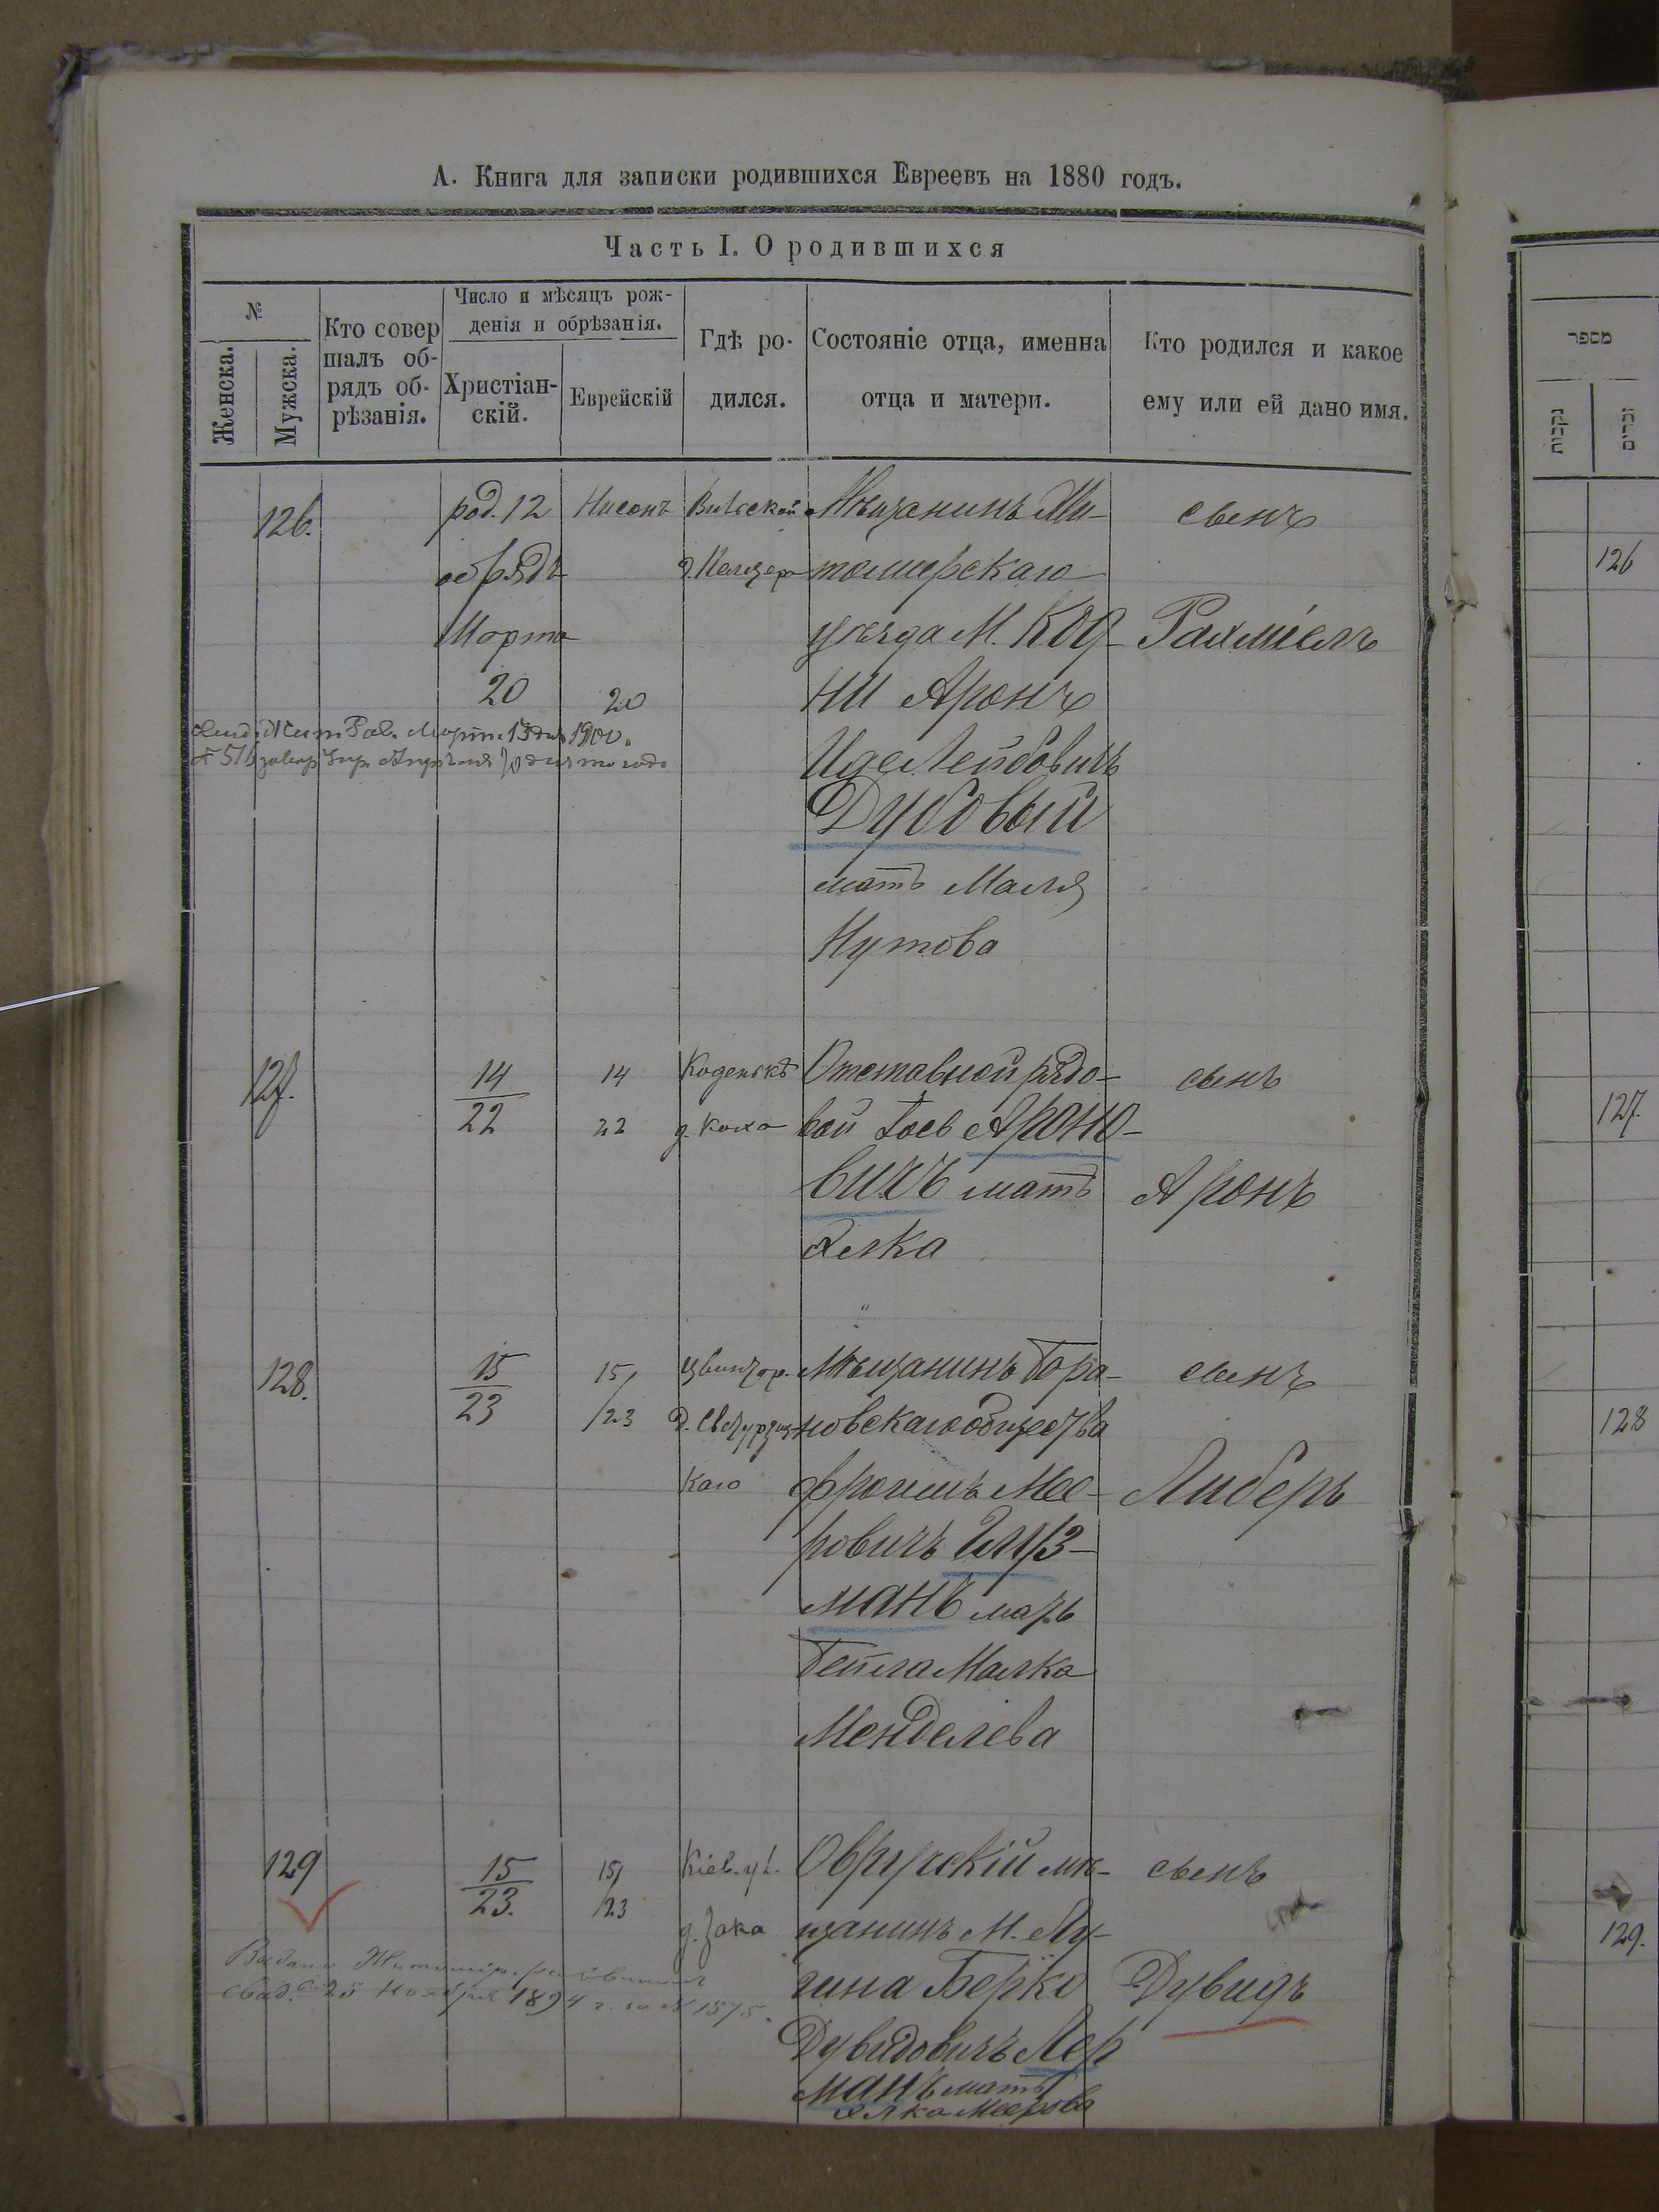 А. Книга для записки родившихся Евреевъ на 1880 годъ.
Часть I. О родившихся
№
Женска.
Мужска.
Кто совер
шалъ об-
рядъ об-
рѣзанія.
Число и мѣсяцъ рож-
денія и обрѣзанія.
Христіан-
скій.
Еврейскій
Гдѣ ро-
дился.
Состояніе отца, именна
отца и матери.
Кто родился и какое
ему или ей дано имя.
126.
род. 12
обрядъ
Марта
20
Нисонъ
20
Вильской
Мѣщанинъ Жи-
томирскаго
уѣзда М. Код-
ни Аронъ
Иде Лейбовичъ
Дубовый
мать Маля
Нутова
сынъ
Рахміель
Марта 13 дня 1900.
127.
14
22
14
22
д. Коха
Отставной рядо-
вой Гось Ароно-
вичъ мать
Элка
сынъ
Аронъ
128.
15
23
15/
/23
каго
Мѣщанинъ Бара-
новскаго общества
Фроимъ Мее-
ровичъ Глуз-
манъ мать
Бейла Малка
Менделева
сынъ
Либеръ
129
15
23.
15/
/23
Кіев. ул.
д. Зака
Овручскій мѣ-
щанинъ М. Лу-
гина Берко
Дувидовичъ Лер
манъ мать
Элка Меерова
сынъ
Дувидъ
Ноября 1894 г. за № 1575.
מספר
נקבות
זכרים
126
127.
128
129.